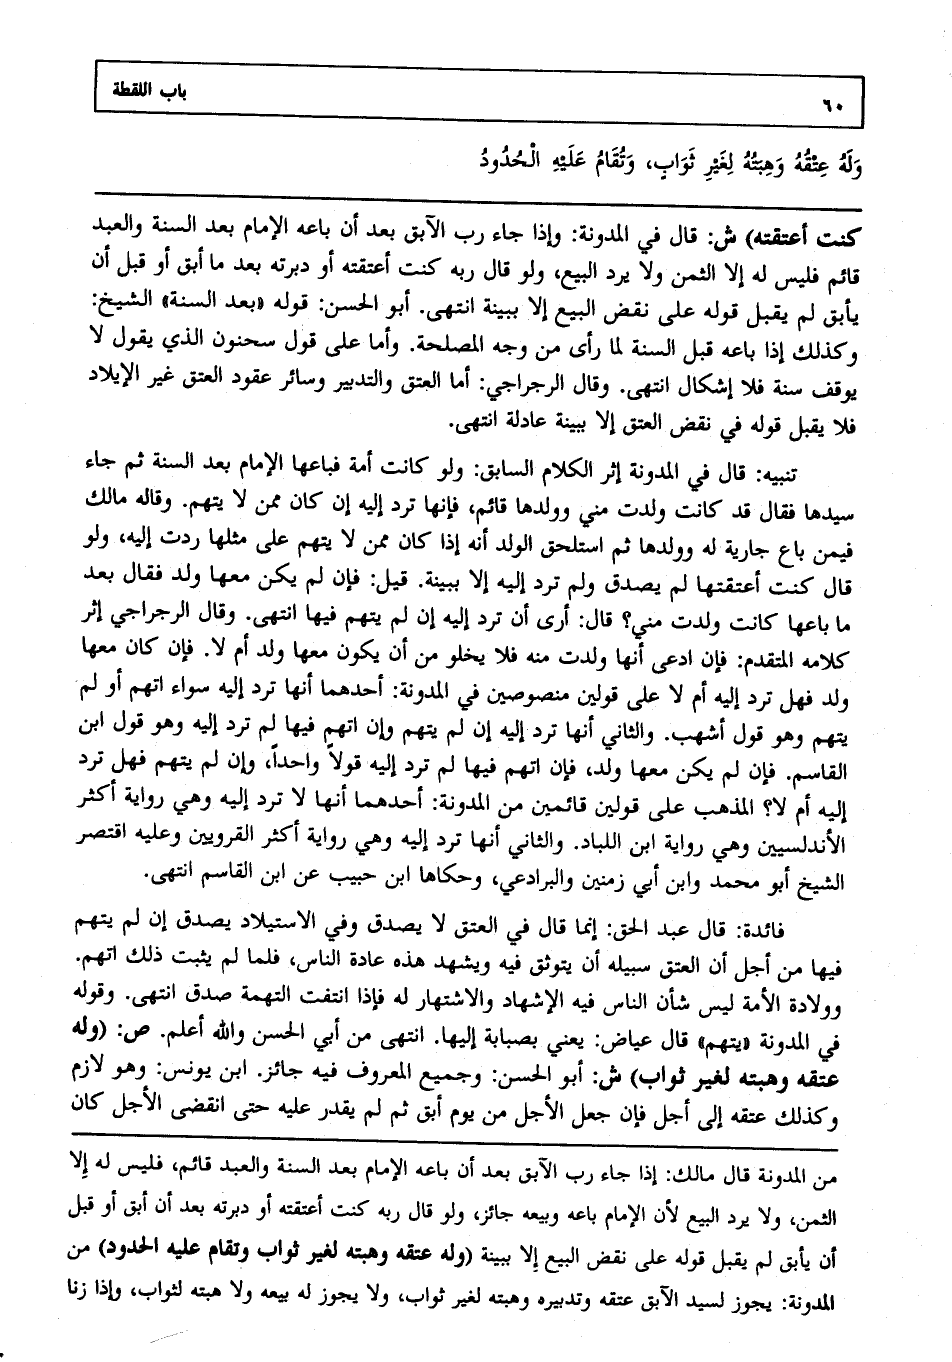 ٦٠ باب اللقطة
وَلَهُ عِتْقُهُ وَهِبَتُهُ لِغَيْرِ ثَوَابٍ، وَتُقَامُ عَلَيْهِ الْحُدُودُ
كنت أعتقته) ش: قال في المدونة: وإذا جاء رب الآبق بعد أن باعه الإمام بعد السنة والعبد
قائم فليس له إلا الثمن ولا يرد البيع، ولو قال ربه كنت أعتقته أو دبرته بعد ما أبق أو قبل أن
يأبق لم يقبل قوله على نقض البيع إلا ببينة انتهى. أبو الحسن: قوله «بعد السنة» الشيخ:
وكذلك إذا باعه قبل السنة لما رأى من وجه المصلحة. وأما على قول سحنون الذي يقول لا
يوقف سنة فلا إشكال انتهى. وقال الرجراجي: أما العتق والتدبير وسائر عقود العتق غير الإيلاد
فلا يقبل قوله في نقض العتق إلا ببينة عادلة انتهى.
تنبيه: قال في المدونة إثر الكلام السابق: ولو كانت أمة فباعها الإمام بعد السنة ثم جاء
سيدها فقال قد كانت ولدت مني وولدها قائم، فإنها ترد إليه إن كان ممن لا يتهم. وقاله مالك
فيمن باع جارية له وولدها ثم استلحق الولد أنه إذا كان ممن لا يتهم على مثلها ردت إليه، ولو
قال كنت أعتقتها لم يصدق ولم ترد إليه إلا ببينة. قيل: فإن لم يكن معها ولد فقال بعد
ما باعها كانت ولدت مني؟ قال: أرى أن ترد إليه إن لم يتهم فيها انتهى. وقال الرجراجي إثر
كلامه المتقدم: فإن ادعى أنها ولدت منه فلا يخلو من أن يكون معها ولد أم لا. فإن كان معها
ولد فهل ترد إليه أم لا على قولين منصوصين في المدونة: أحدهما أنها ترد إليه سواء اتهم أو لم
يتهم وهو قول أشهب. والثاني أنها ترد إليه إن لم يتهم وإن اتهم فيها لم ترد إليه وهو قول ابن
القاسم. فإن لم يكن معها ولد، فإن اتهم فيها لم ترد إليه قولاً واحداً، وإن لم يتهم فهل ترد
إليه أم لا؟ المذهب على قولين قائمين من المدونة: أحدهما أنها لا ترد إليه وهي رواية أكثر
الأندلسيين وهي رواية ابن اللباد. والثاني أنها ترد إليه وهي رواية أكثر القرويين وعليه اقتصر
الشيخ أبو محمد وابن أبي زمنين والبرادعي، وحكاها ابن حبيب عن ابن القاسم انتهى.
فائدة: قال عبد الحق: إنما قال في العتق لا يصدق وفي الاستيلاد يصدق إن لم يتهم
فيها من أجل أن العتق سبيله أن يتوثق فيه ويشهد هذه عادة الناس، فلما لم يثبت ذلك اتهم.
وولادة الأمة ليس شأن الناس فيه الإشهاد والاشتهار له فإذا انتفت التهمة صدق انتهى. وقوله
في المدونة «يتهم» قال عياض: يعني بصبابة إليها. انتهى من أبي الحسن والله أعلم. ص: (وله
عتقه وهبته لغير ثواب) ش: أبو الحسن: وجميع المعروف فيه جائز. ابن يونس: وهو لازم
وكذلك عتقه إلى أجل فإن جعل الأجل من يوم أبق ثم لم يقدر عليه حتى انقضى الأجل كان
من المدونة قال مالك: إذا جاء رب الآبق بعد أن باعه الإمام بعد السنة والعبد قائم، فليس له إلا
الثمن، ولا يرد البيع لأن الإمام باعه وبيعه جائز، ولو قال ربه كنت أعتقته أو دبرته بعد أن أبق أو قبل
أن يأبق لم يقبل قوله على نقض البيع إلا ببينة (وله عتقه وهبته لغير ثواب وتقام عليه الحدود) من
المدونة: يجوز لسيد الآبق عتقه وتدبيره وهبته لغير ثواب، ولا يجوز له بيعه ولا هبته لثواب، وإذا زنا